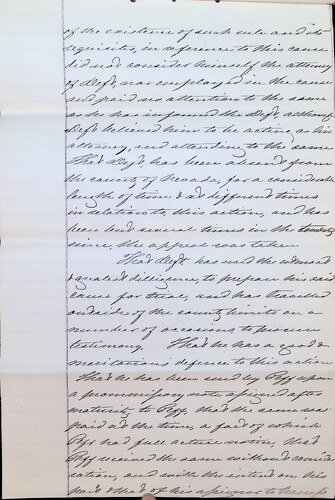 of the existence of such rule and its
requisites, in reference to this cause
did not consider himself the attorney
of Deft, nor employed in the cause
and paid no attention to the same
as he has informed the Deft, although
Deft believed him to be acting as his
attorney, and attending to the same
That Deft has been absent from
the county of Nevada, for a considerable
length of time & at different times
in relation to this action, and has
been but several times in the county
since the appeal was taken
That Deft has used the utmost
& greatest dilligence, to prepare his said
cause for trial, and has travelled
outside of the county limits on a
number of occasions to procure
testimony. That he has a good &
meritorious defence to this action
That he has been sued by Plff upon
a promissory note assigned after
maturity to Plff, that the same was
paid at the time, a fact of which
Plff had full actual notice, that
Plff received the same without consid
eration, and with the intent on his
part & that of his